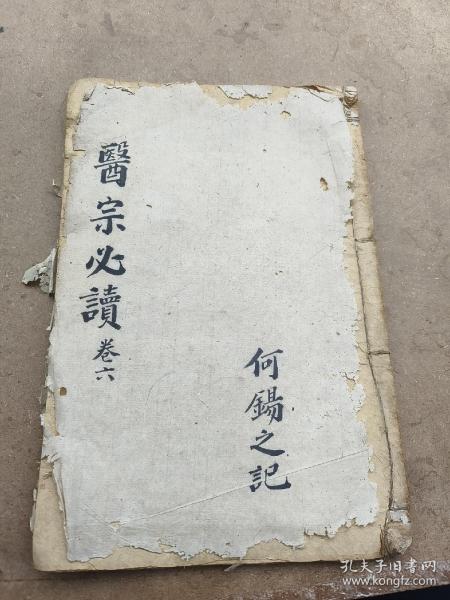 醫宗必讀 卷六
何錫之記
孔夫子旧书网
www.kongfz.com